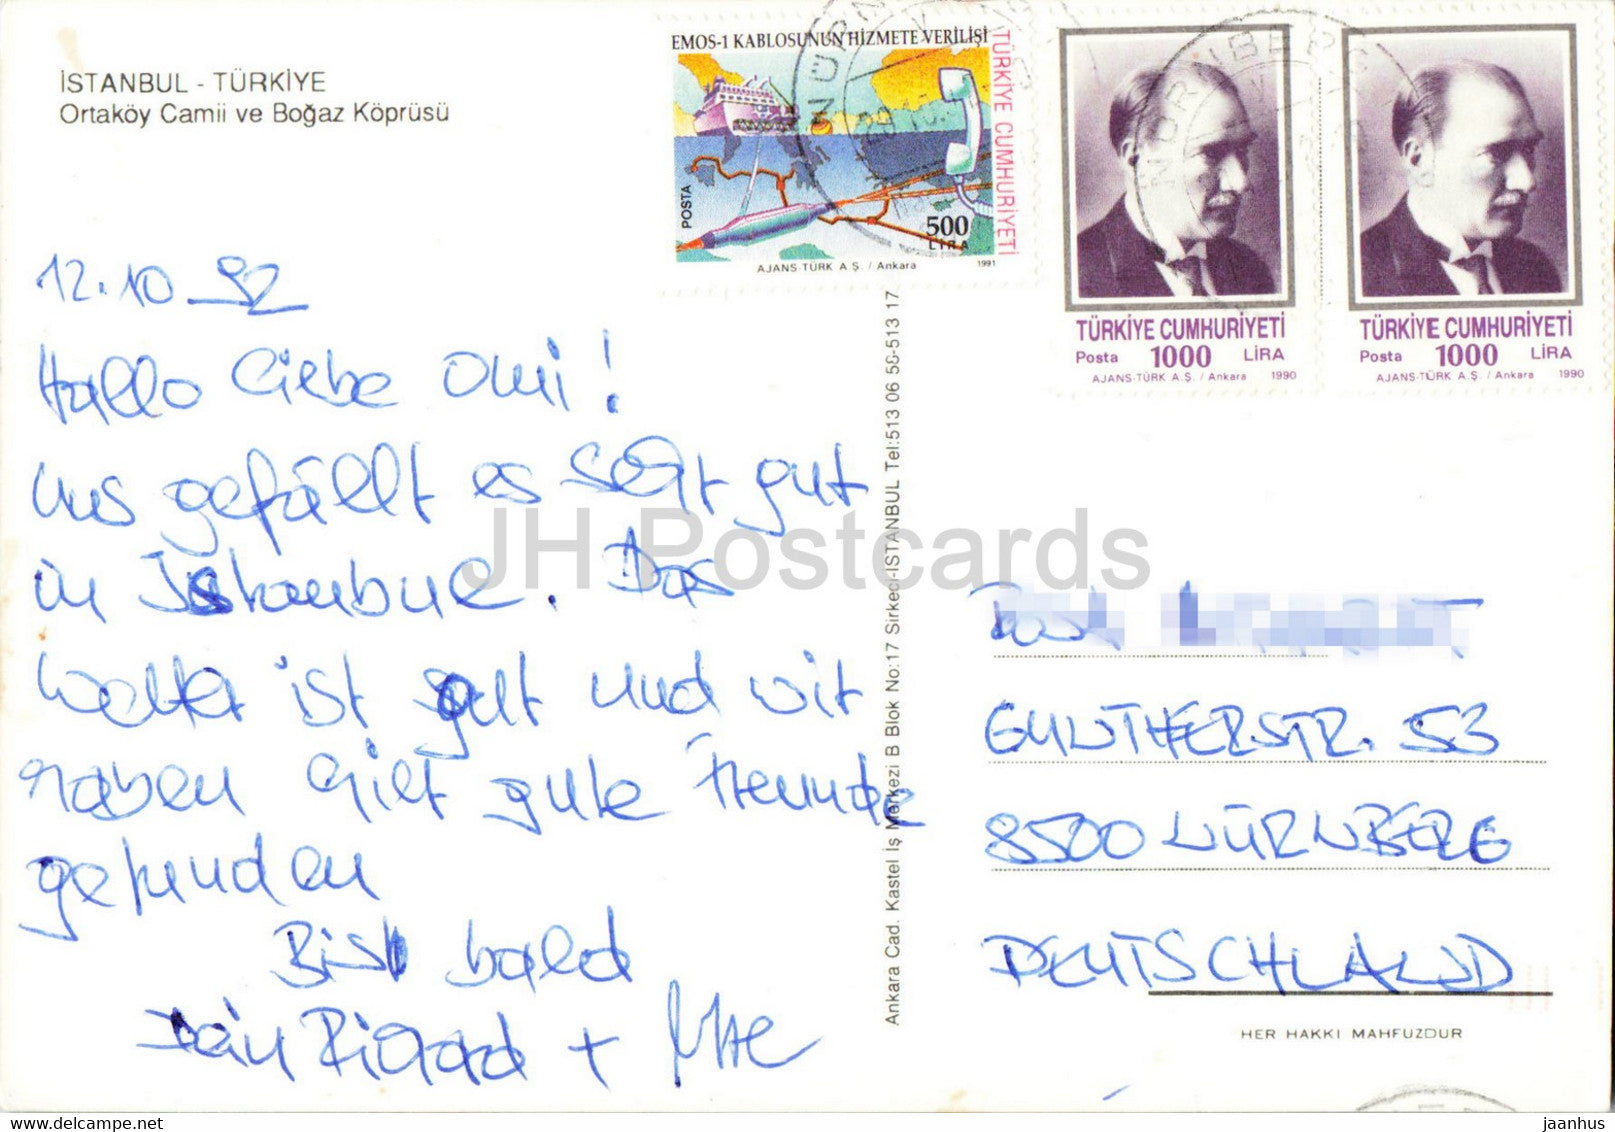 İSTANBUL - TÜRKİYE
Ortaköy Camii ve Boğaz Köprüsü
EMOS-1 KABLOSUNUN HİZMETE VERİLİŞİ
TÜRKİYE CUMHURİYETİ
POSTA
500
LİRA
AJANS-TÜRK A.Ş. / Ankara 1991
TÜRKİYE CUMHURİYETİ
Posta 1000 LİRA
AJANS-TÜRK A.Ş. / Ankara 1990
TÜRKİYE CUMHURİYETİ
Posta 1000 LİRA
AJANS-TÜRK A.Ş. / Ankara 1990
NÜRNBERG
12.10.92
Hallo liebe Omi!
Uns gefällt es sehr gut
in Istanbul. Das
Wetter ist gut und wir
haben hier gute Freunde
gefunden
Bis bald
Dein Richard +
Ankara Cad. Kastel İş Merkezi B Blok No:17 Sirkeci-İSTANBUL Tel:513 06 56-513 17
GUNTHERSTR. 53
8500 NÜRNBERG
DEUTSCHLAND
HER HAKKI MAHFUZDUR
JH Postcards
delcampe.net
jaanhus